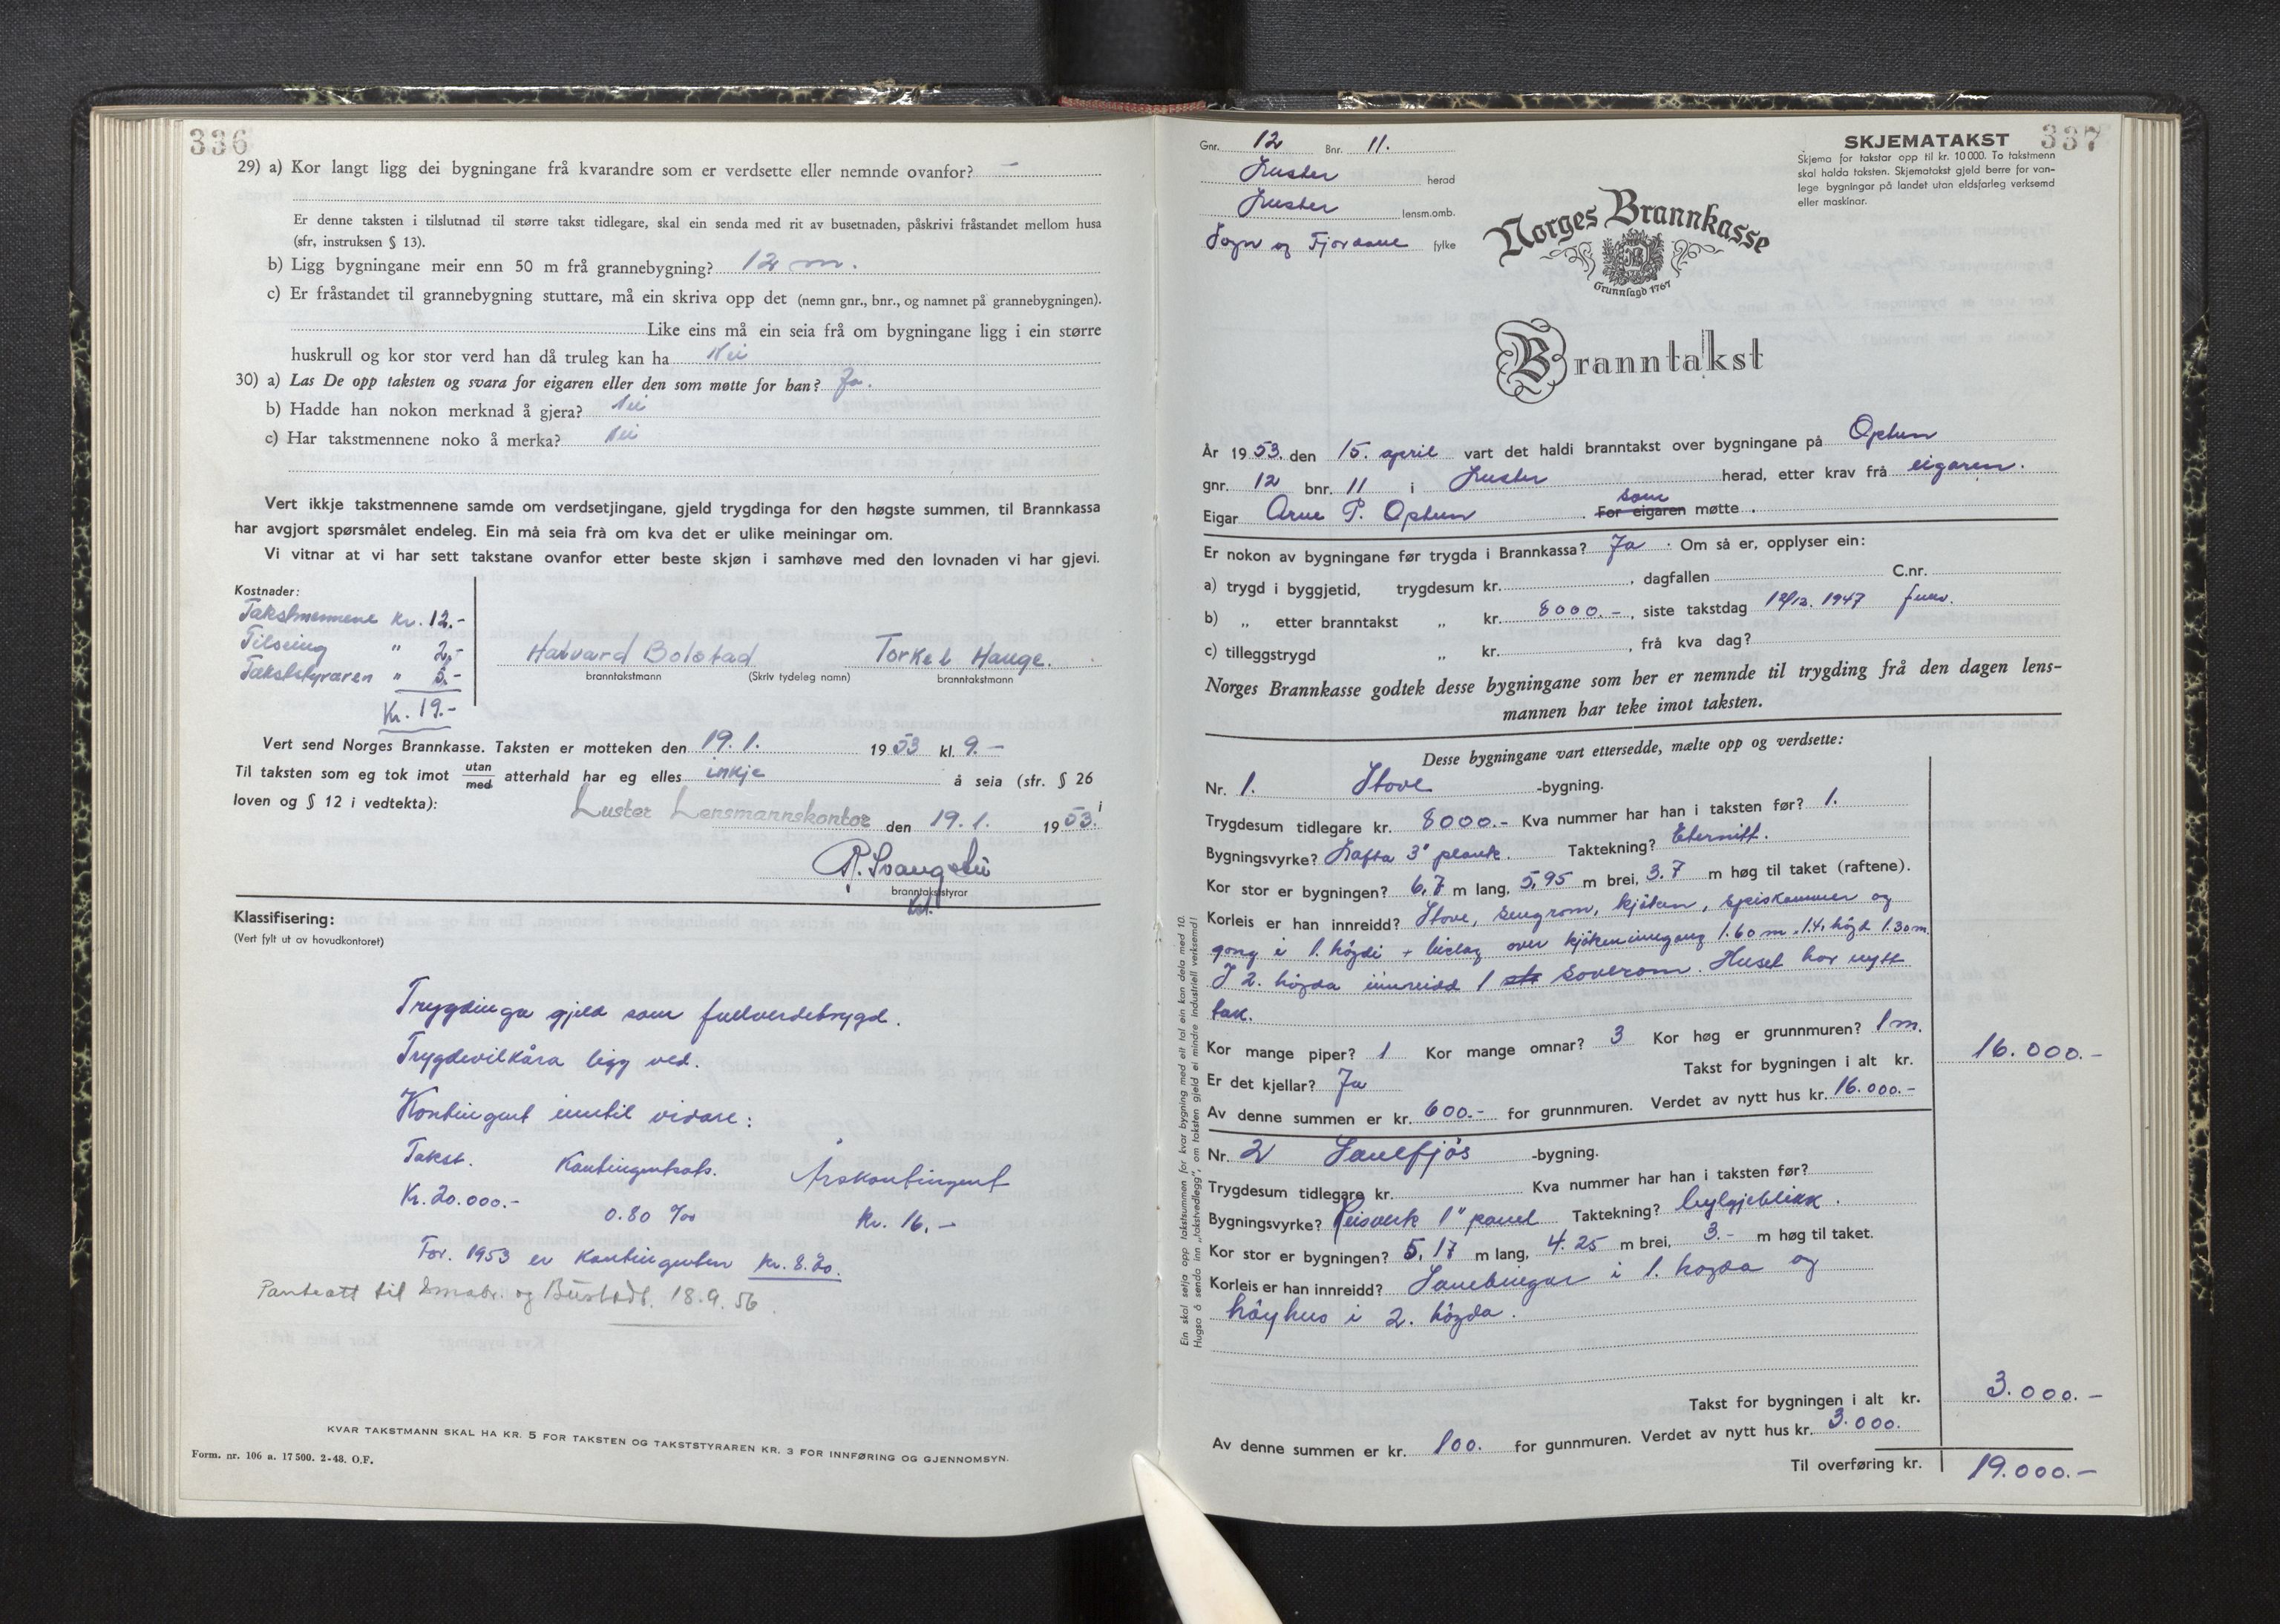 336
29) a) Kor langt ligg dei bygningane frå kvarandre som er verdsette eller nemnde ovanfor? —
Er denne taksten i tilslutnad til større takst tidlegare, skal ein senda med rit av busetnaden, påskrivi fråstandet mellom husa
(sfr, instruksen § 13).
b) Ligg bygningane meir enn 50 m frå grannebygning? 12 m.
c) Er fråstandet til grannebygning stuttare, må ein skriva opp det (nemn gnr., bnr., og namnet på grannebygningen).
Like eins må ein seia frå om bygningane ligg i ein større
huskrull og kor stor verd han då truleg kan ha Nei
30) a) Las De opp taksten og svara for eigaren eller den som møtte for han? Ja.
b) Hadde han nokon merknad å gjera? Nei
c) Har takstmennene noko å merka? Nei
Vert ikkje takstmennene samde om verdsetjingane, gjeld trygdinga for den høgste summen, til Brannkassa
har avgjort spørsmålet endeleg. Ein må seia frå om kva det er ulike meiningar om.
Vi vitnar at vi har sett takstane ovanfor etter beste skjøn i samhøve med den lovnaden vi har gjevi.
Kostnader:
Takstmennene Kr. 12.-
Tilseing " 2.-
Takststyraren " 5.-
Kr. 19.-
Havard Bolstad Torkel Hauge.
branntakstmann (Skriv tydeleg namn) branntakstmann
Vert send Norges Brannkasse. Taksten er motteken den 19.1. 1953 kl. 9.—
Til taksten som eg tok imot utan/med atterhald har eg elles inkje å seia (sfr. § 26 i
loven og § 12 i vedtekta):
Luster Lensmannskontor den 19.1. 1953.
branntakststyrar
Klassifisering:
(Vert fylt ut av hovudkontoret)
Trygdinga gjeld som fullverdetrygd.
Trygdevilkåra ligg ved.
Kontingent inntil vidare:
Takst. Kontingentsats. Årskontingent
Kr. 20.000.- 0.80 ‰ Kr. 16.—
For 1953 er kontingenten kr. 8.20.
Pantsatt til Småbr. og Bustadb. 18.9.56.
KVAR TAKSTMANN SKAL HA KR. 5 FOR TAKSTEN OG TAKSTSTYRAREN KR. 3 FOR INNFØRING OG GJENNOMSYN.
Form. nr. 106 a. 17500. 2-48. O.F.
337
Gnr. 12 Bnr. 11.
Luster herad
Luster lensm.omb.
Sogn og Fjordane fylke
SKJEMATAKST
Skjema for takstar opp til kr. 10 000. To takstmenn
skal halda taksten. Skjematakst gjeld berre for van-
lege bygningar på landet utan eldsfarleg verksemd
eller maskinar.
Norges Brannkasse
Grunnlagd 1767
Branntakst
År 1953. den 15. april vart det haldi branntakst over bygningane på Optun
gnr. 12 bnr. 11 i Luster herad, etter krav frå eigaren.
Eigar Arne P. Optun . For eigaren som møtte .
Er nokon av bygningane før trygda i Brannkassa? Ja . Om så er, opplyser ein:
a) trygd i byggjetid, trygdesum kr. , dagfallen C.nr.
b) „ etter branntakst „ kr. 8000.– , siste takstdag 12/12. 1947
c) tilleggstrygd „ kr. , frå kva dag?
Norges Brannkasse godtek desse bygningane som her er nemnde til trygding frå den dagen lens-
mannen har teke imot taksten.
Desse bygningane vart ettersedde, mælte opp og verdsette:
Nr. 1. Stove -bygning.
Trygdesum tidlegare kr. 8000.- Kva nummer har han i taksten før? 1.
Bygningsvyrke? Lafta 3" plank. Taktekning? Eternitt.
Kor stor er bygningen? 6,7 m lang, 5,95 m brei, 3.7 m høg til taket (raftene).
Korleis er han innreidd? Stove, sengrom, kjøken, speiskammer og
gong i 1. høgdi + bislag over kjøkeninngang 1.60 m × 1.4, høgd 1.30 m.
I 2. høgda innreidd 1 soverom. Huset har nytt
tak.
Kor mange piper? 1 Kor mange omnar? 3 Kor høg er grunnmuren? 1 m.
Er det kjellar? Ja Takst for bygningen i alt kr. 16.000.—
Av denne summen er kr. 600.- for grunnmuren. Verdet av nytt hus kr. 16.000.-
Nr. 2 Sauefjøs -bygning.
Trygdesum tidlegare kr. Kva nummer har han i taksten før?
Bygningsvyrke? Reisverk 1" panel Taktekning? bylgjeblikk.
Kor stor er bygningen? 5,17 m lang, 4.25 m brei, 3.- m høg til taket.
Korleis er han innreidd? Sauebingar i 1. høgda og
høyhus i 2. høgda.
Takst for bygningen i alt kr. 3.000.—
Av denne summen er kr. 100. for gunnmuren. Verdet av nytt hus kr. 3.000.
Til overføring kr. 19.000.—
Ein skal setja opp takstsummen for kvar bygning med eit tal ein kan dela med 10.
Hugsa å senda inn „takstvedlegg", om taksten gjeld ei mindre industriell verksemd!